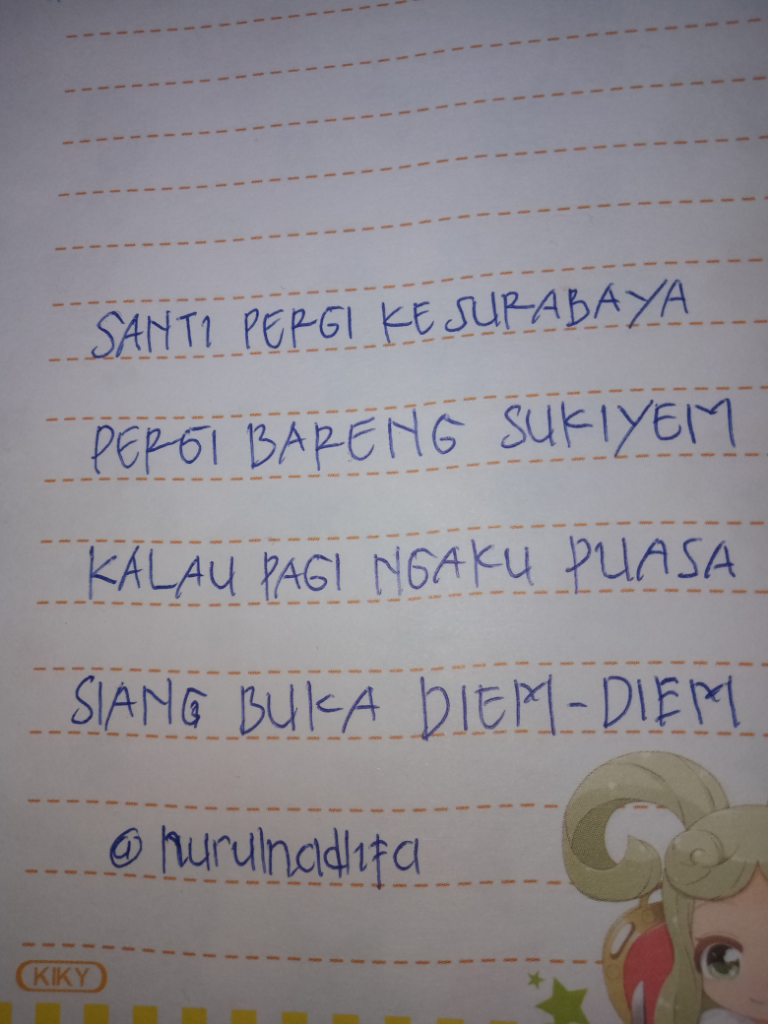 SANTI PERGI KE SURABAYA
PERGI BARENG SUKIYEM
KALAU PAGI NGAKU PUASA
SIANG BUKA DIEM-DIEM
@nurulnadlifa
KIKY